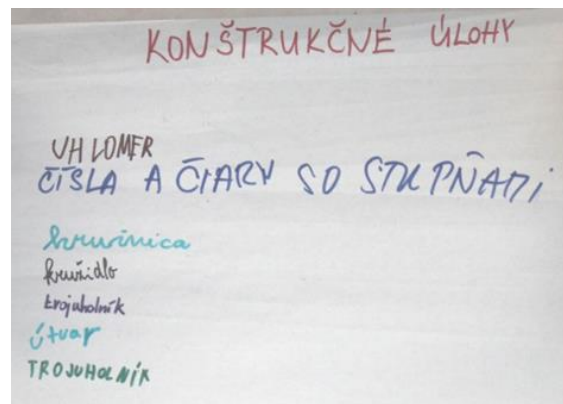 KONŠTRUKČNÉ ÚLOHY
UHLOMER
ČÍSLA A ČIARY SO STUPŇAMI
kružnica
kružidlo
trojuholník
útvar
TROJUHOLNÍK